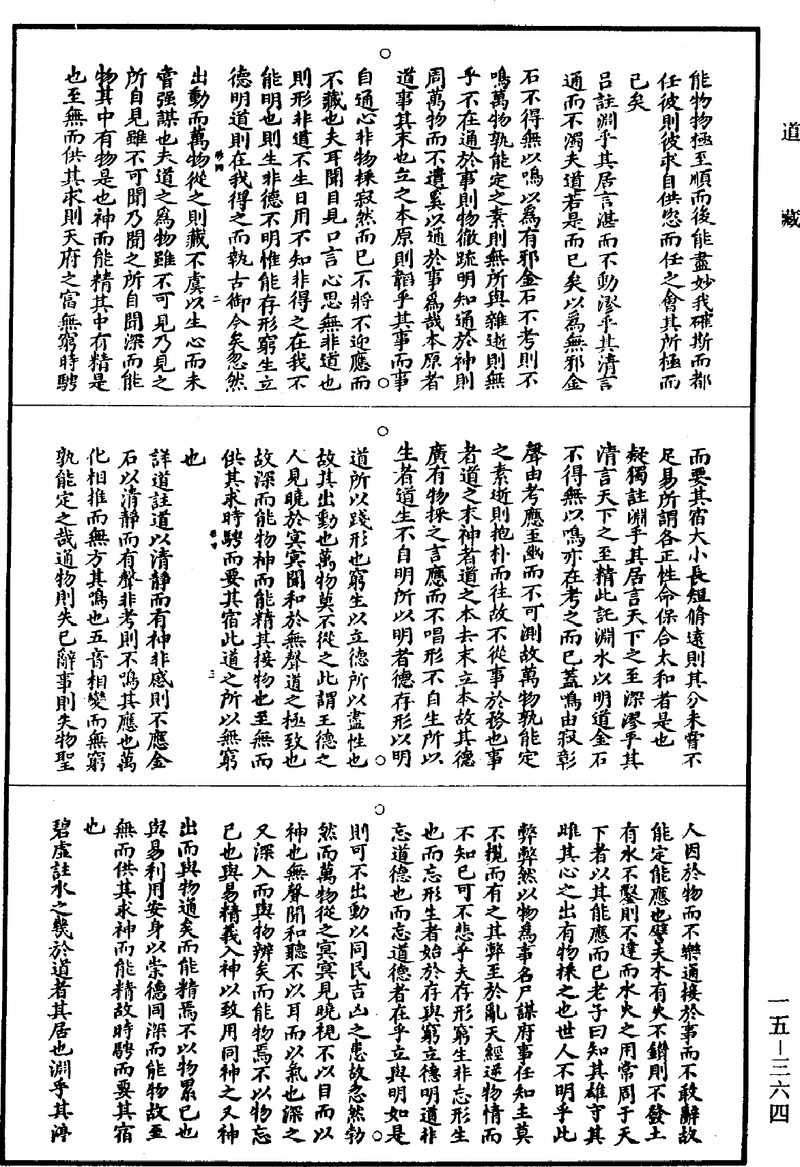 道藏
能物物極至順而後能盡妙我確斯而都
任彼則彼求自供恣而任之會其所極而
已矣
呂註淵乎其居言湛而不動漻乎其清言
通而不濁夫道若是而已矣以為無邪金
石不得無以鳴以為有邪金石不考則不
鳴萬物孰能定之素則無所與雜逝則無
乎不在通於事則物徹疏明知通於神則
周萬物而不遺奚以通於事為哉本原者
道事其末也立之本原則韜乎其事而事
自通心非物採寂然而已不將不迎應而
不藏也夫耳聞目見口言心思無非道也
則形非道不生日用不知非得之在我不
能明也則生非德不明惟能存形窮生立
德明道則在我得之而執古御今矣忽然
出動而萬物從之則藏不虞以生心而未
嘗强謀也夫道之為物雖不可見乃見之
所自見雖不可聞乃聞之所自聞深而能
物其中有物是也神而能精其中有精是
也至無而供其求則天府之富無窮時騁
二
而要其宿大小長短脩遠則其分未嘗不
足易所謂各正性命保合太和者是也
疑獨註淵乎其居言天下之至深漻乎其
清言天下之至精此託淵水以明道金石
不得無以鳴亦在考之而已蓋鳴由寂彰
聲由考應至幽而不可測故萬物孰能定
之素逝則抱朴而往故不從事於務也事
者道之末神者道之本去末立本故其德
廣有物採之言應而不唱形不自生所以
生者道生不自明所以明者德存形以明
道所以踐形也窮生以立德所以盡性也
故其出動也萬物莫不從之此謂王德之
人見曉於冥冥聞和於無聲道之極致也
故深而能物神而能精其接物也至無而
供其求時騁而要其宿此道之所以無窮
也
詳道註道以清靜而有神非感則不應金
石以清靜而有聲非考則不鳴其應也萬
化相推而無方其鳴也五音相變而無窮
孰能定之哉通物則失已辭事則失物聖
三
人因於物而不樂通接於事而不敢辭故
能定能應也譬夫木有火不鑽則不發土
有水不鑿則不達而水火之用常周于天
下者以其能應而已老子曰知其雄守其
雌其心之出有物採之也世人不明乎此
弊弊然以物為事名尸謀府事任知主莫
不攬而有之其弊至於亂天經逆物情而
不知已可不悲乎夫存形窮生非忘形生
也而忘形生者始於存與窮立德明道非
忘道德也而忘道德者在乎立與明如是
則可不出動以同民吉凶之患故忽然勃
然而萬物從之冥冥見曉視不以目而以
神也無聲聞和聽不以耳而以氣也深之
又深入而與物辨矣而能物焉不以物忘
已也與易精義入神以致用同神之又神
出而與物通矣而能精焉不以物累已也
與易利用安身以崇德同深而能物故至
無而供其求神而能精故時騁而要其宿
也
碧虛註水之幾於道者其居也淵乎其渟
一五—三六四